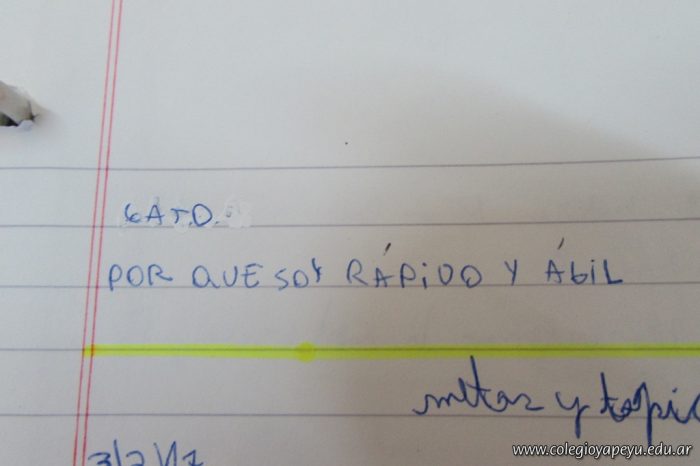 GATO.
POR QUE SOY RÁPIDO Y ÁGIL
metas y topic
3/2/17
www.colegioyapeyu.edu.ar